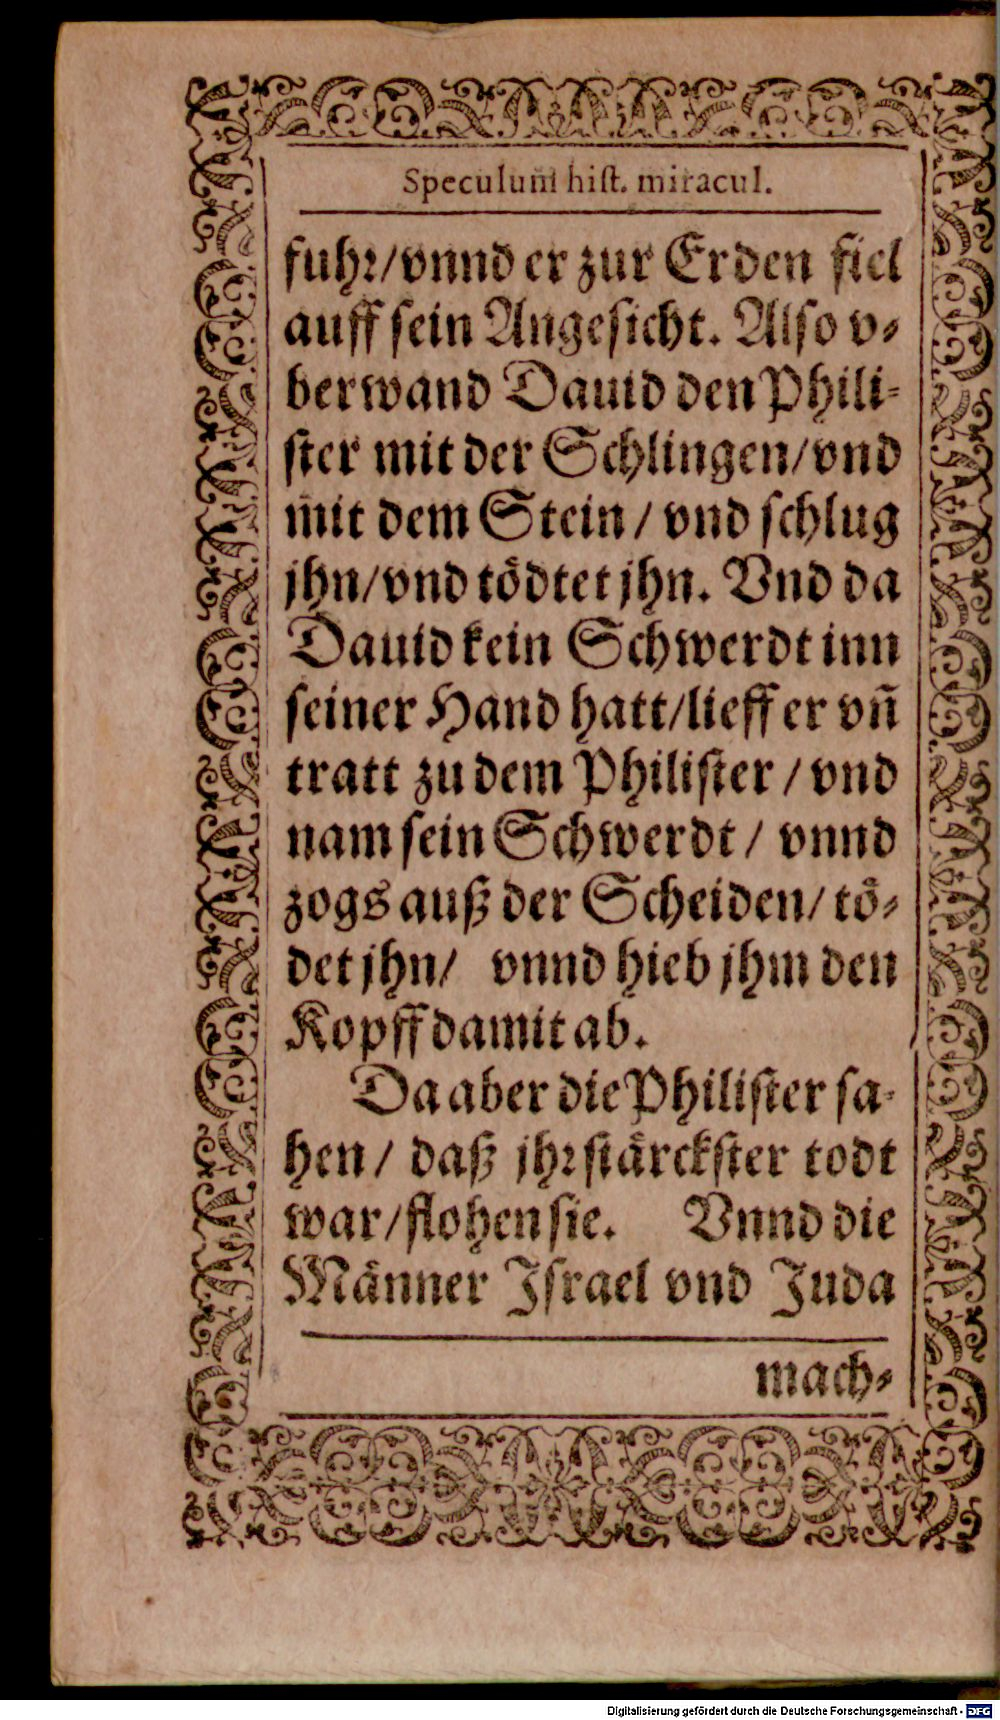 Speculum hist. miracul.
fuhr/vnnd er zur Erden fiel
auff sein Angesicht. Also v⸗
berwand Dauid den Phili⸗
ster mit der Schlingen/vnd
mit dem Stein / vnd schlug
jhn/vnd tödtet jhn. Vnd da
Dauid kein Schwerdt inn
seiner Hand hatt/lieff er vñ
tratt zu dem Philister / vnd
nam sein Schwerdt / vnnd
zogs auß der Scheiden/ tö⸗
det jhn/ vnnd hieb jhm den
Kopff damit ab.
Da aber die Philister sa⸗
hen / daß jhr stärckster todt
war/flohen sie. Vnnd die
Männer Israel vnd Juda
mach⸗
Digitalisierung gefördert durch die Deutsche Forschungsgemeinschaft - DFG